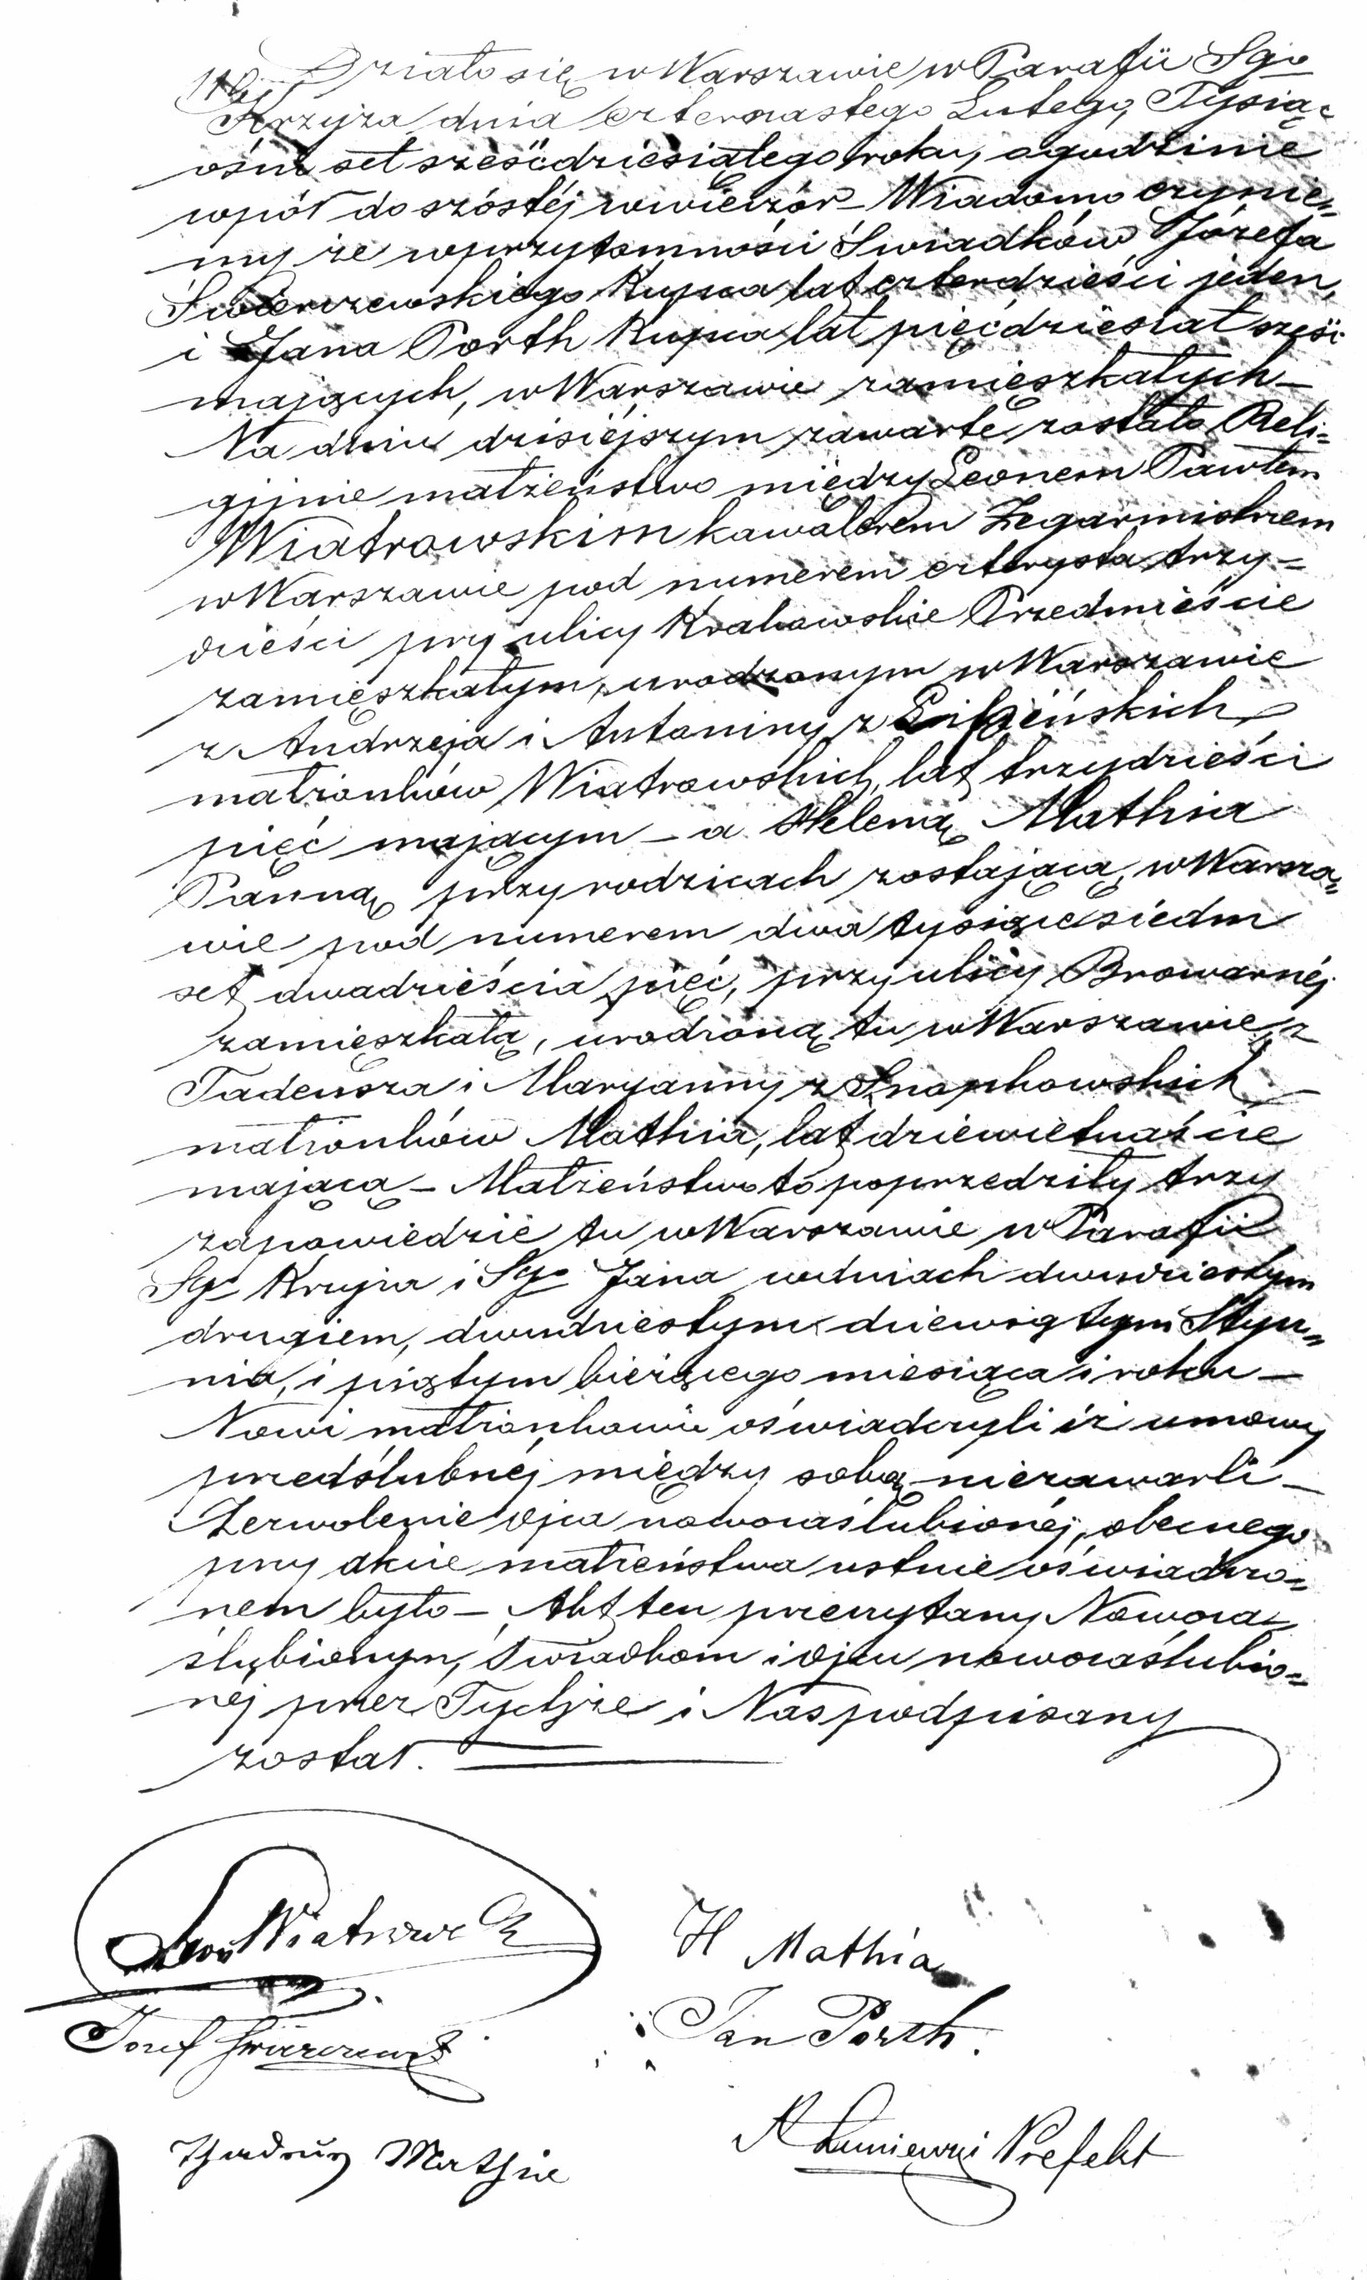 Działo się w Warszawie w Parafii Sgo
Krzyża dnia czternastego Lutego, Tysiąc
ośm set sześćdziesiątego roku, o godzinie
wpół do szóstéj wwieczór – Wiadomo czynie=
my że wprzytomności Świadków Józefa
Świerczewskiego Kupca lat czterdzieści jeden,
i Jana Porth Kupca lat pięćdziesiat sześć
mających, w Warszawie zamięszkałych –
Na dniu dzisiéjszym zawarte zostało Reli=
gijnie małżeństwo między Leonem Pawłem
Wiatrowskim kawalerem Zegarmistrzem
w Warszawie pod numerem czterysta trzy=
dzieści przy ulicy Krakowskie Przedmieście
zamięszkałym, urodzonym w Warszawie
z Andrzeja i Antoniny z
małżonków Wiatrowskich, lat trzydzieści
pięć mającym – a Heleną Mathia
Panną przy rodzicach zostającą, w Warsza=
wie pod numerem dwa tysiące siedm
set dwadzieścia pięć, przy ulicy Browarnéj
zamięszkałą, urodzoną tu w Warszawie z
Tadeusza i Maryanny z Snopkowskich
małżonków Mathia, lat dziewiętnaście
mającą – Małżeństwo to poprzedziły trzy
zapowiedzie tu w Warszawie w Parafii
Sgo Krzyża i Sgo Jana w dniach dwudziestym
drugiem, dwudziestym dziewiątym Stycz=
nia, i piątym bieżącego miesiąca i roku –
Nowi małżonkowie oświadczyli iż umowy
przedślubnéj między sobą niezawarli –
Zezwolenie Ojca nowozaślubionéj, obecnego
przy akcie małżeństwa ustnie oświadczo=
nem było – Akt ten przeczytany Nowoza
ślubionym, Świadkom i Ojcu nowozaślubio=
néj przez Tychże i Nas podpisany
został.
Leon Wiatrowski
H Mathia
Józef Świerczewski
Jan Porth.
Thadeusz Mathia
A Łuniewski Prefekt